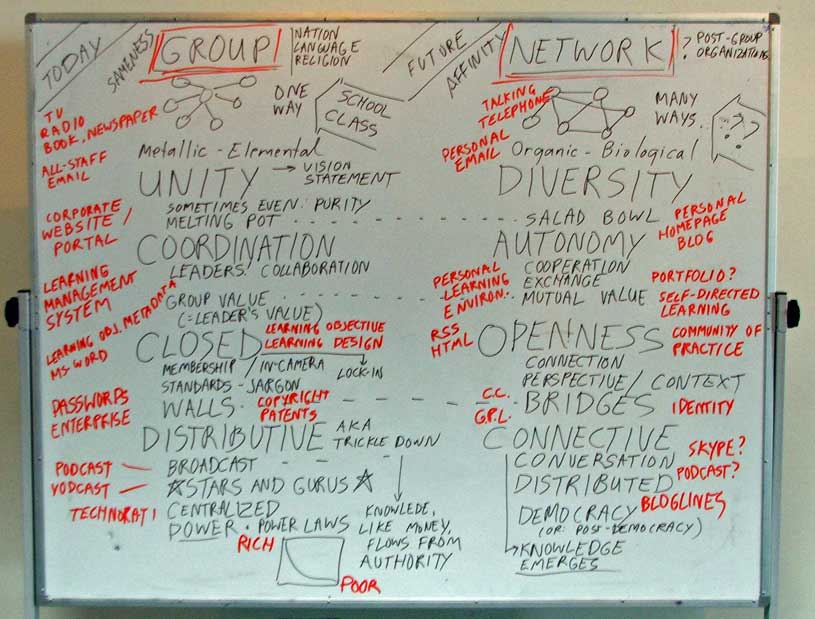 TODAY
SAMENESS
GROUP
NATION
LANGUAGE
RELIGION
TV
RADIO
BOOK, NEWSPAPER
ONE
WAY
SCHOOL
CLASS
ALL-STAFF
EMAIL
Metallic - Elemental
UNITY → VISION
STATEMENT
SOMETIMES EVEN: PURITY
MELTING POT
CORPORATE
WEBSITE /
PORTAL
COORDINATION
LEADERS' COLLABORATION
LEARNING
MANAGEMENT
SYSTEM
GROUP VALUE
(=LEADER'S VALUE)
LEARNING OBJ. METADATA
MS-WORD
CLOSED
LEARNING OBJECTIVE
LEARNING DESIGN
MEMBERSHIP / IN-CAMERA
LOCK-IN
STANDARDS - JARGON
PASSWORDS
ENTERPRISE
WALLS
COPYRIGHT
PATENTS
DISTRIBUTIVE AKA
TRICKLE DOWN
PODCAST — BROADCAST
VODCAST — ☆STARS AND GURUS☆
TECHNORATI
CENTRALIZED
POWER · POWER LAWS
RICH
POOR
KNOWLEDE,
LIKE MONEY,
FLOWS FROM
AUTHORITY
FUTURE
AFFINITY
NETWORK
? POST-GROUP
ORGANIZATIONS
TALKING
TELEPHONE
MANY
WAYS..
? ? ?
PERSONAL
EMAIL
Organic - Biological
DIVERSITY
SALAD BOWL
PERSONAL
HOMEPAGE
BLOG
AUTONOMY
COOPERATION
EXCHANGE
MUTUAL VALUE
PERSONAL
LEARNING
ENVIRON..
PORTFOLIO?
SELF-DIRECTED
LEARNING
RSS
HTML
OPENNESS
COMMUNITY OF
PRACTICE
CONNECTION
PERSPECTIVE / CONTEXT
C.C.
G.P.L.
BRIDGES
IDENTITY
CONNECTIVE
CONVERSATION
SKYPE?
DISTRIBUTED
PODCAST?
BLOGLINES
DEMOCRACY
(OR: POST-DEMOCRACY)
KNOWLEDGE
EMERGES